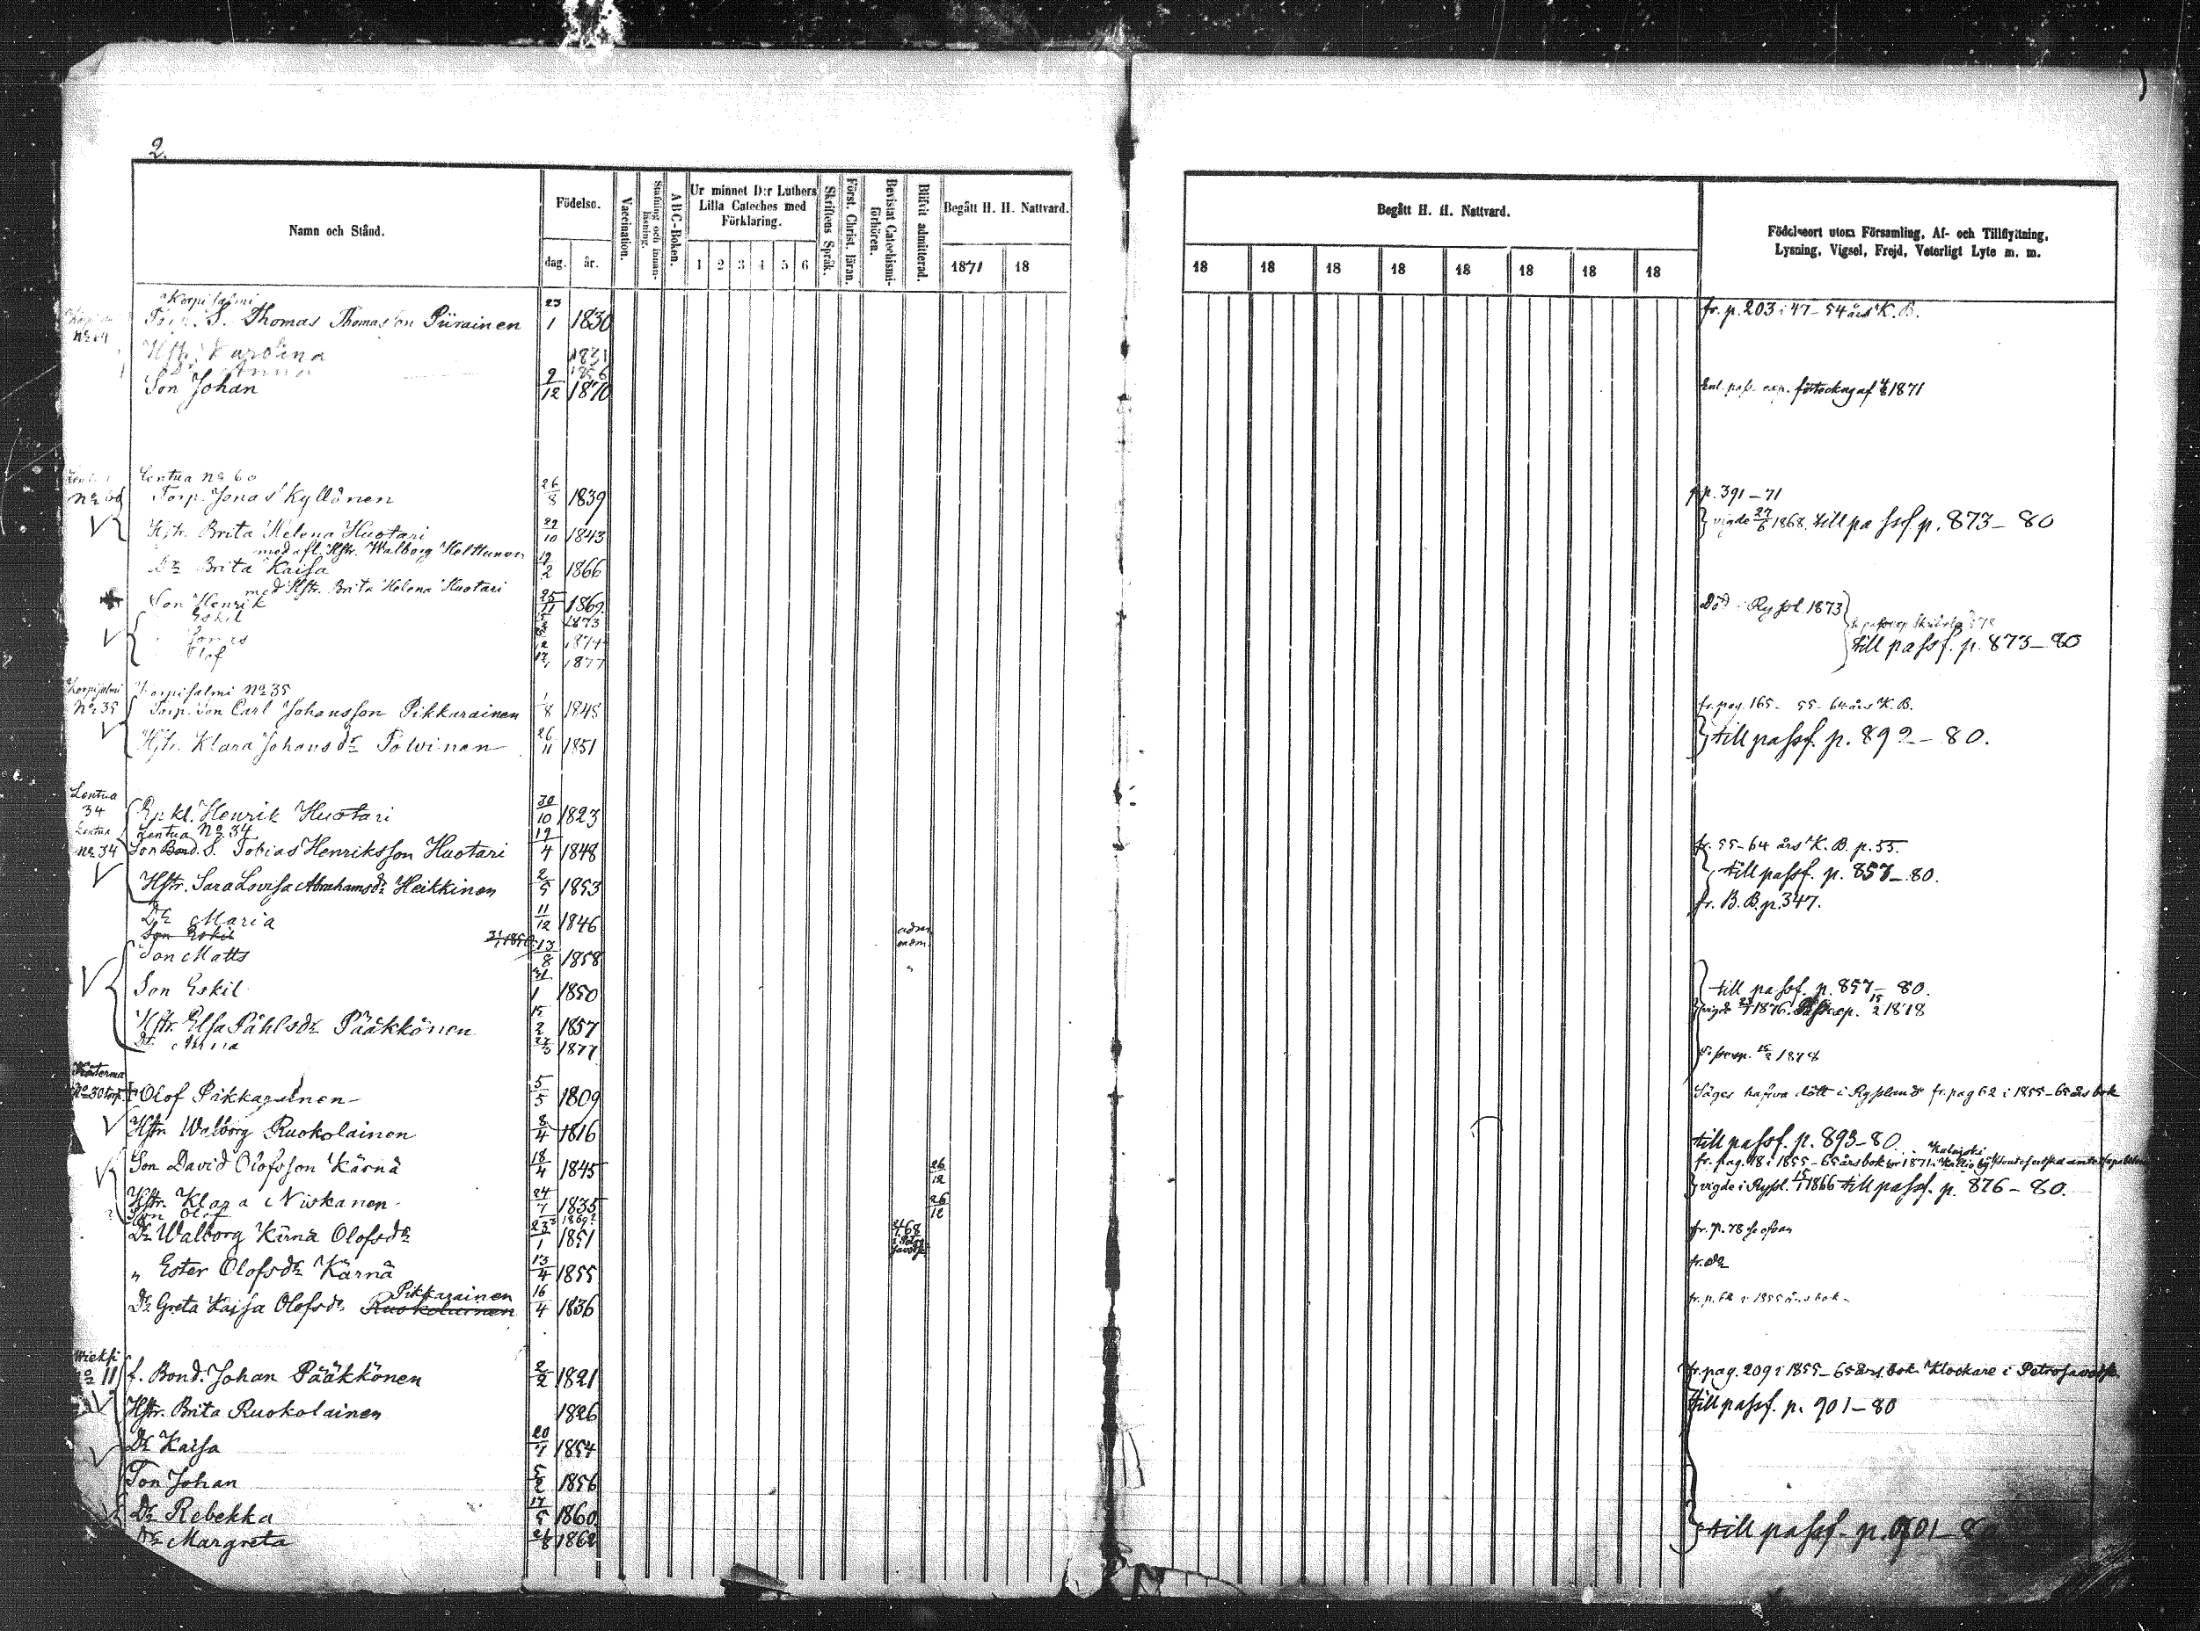 2.
Namn och Stånd.
Födelse.
dag.
år.
Vaccination.
Stafning och Innan-läsning.
ABC-Boken.
Ur minnet D:r Luthers Lilla Cateches med Förklaring.
1 2 3 4 5 6
Skriftens Språk.
Först. Christ. läran.
Bevistat Catechismi-förhören.
Blifvit admitterad.
Begått H. H. Nattvard.
1871 18
Begått H. H. Nattvard.
18 18 18 18 18 18 18 18
Födelseort utom Församling, Af- och Tillflyttning,
Lysning, Vigsel, Frejd, Veterligt Lyte m. m.
Korpisalmi
S. Thomas Thomasson Piirainen 23/1 1830 fr. p. 203 i 47-54 års K. B.
Hstr. Karolina 1831
Anna
Son Johan 9/12 1870 förteckng af 1871
Lentua No 60
No 60 Torp. Jonas Kyllönen 26/8 1839 p. 391-71
Hstr. Brita Helena Huotari 29/10 1843 vigde 27/6 1868. till passf. p. 873-80
med afl. Hstr. Walborg Kelttunen
Dr Brita Kaisa 19/2 1866
med Hstr. Brita Helena Huotari
Son Henrik 25/11 1869. Död i Ryssl. 1873
Eskil 1873
Jonas 1874
Olof 1877 till passf. p. 873-80
Korpisalmi Korpisalmi No 35
No 35 Torp. Son Carl Johansson Pikkarainen 1/8 1848 fr. pag. 165- 55-64 års K. B.
Hstr. Klara Johans dr Polvinen 26/11 1851 till passf. p. 892-80.
Lentua
34 Henrik Huotari 30/10 1823
Lentua Lentua No 34
No 34 Son Bond. S. Tobias Henriksson Huotari 19/4 1848 fr. 55-64 års K. B. p. 55.
Hstr. Sara Lovisa Abrahamsdr Heikkinen 2/5 1853 till passf. p. 857-80.
fr. B. B. p. 347.
Dr Maria 11/12 1846
Son Eskil
Son Matts 13/8 1858
Son Eskil 31/1 1850 till passf. p. 857-80.
Hstr. Elsa Påhlsdr Pääkkönen 15/2 1857 vigde 1876. 15/2 1878
Dr. Anna 1877 15/2 1878
No 30 torp. Olof Pikkarainen 5/5 1809 Säges hafva dött i Ryssland fr. pag 62 i 1855-65 års bok
Hstr. Walborg Ruokolainen 8/4 1816 till passf. p. 893-80
Son David Olofsson Kärnä 18/4 1845 26/12 fr. pag. 78 i 1855-65 års bok
Hstr. Klara Niskanen 24/7 1835 26/12 vigde i Ryssl. 1866 till passf. p. 876-80.
Son Olof 1869
Dr Walborg Kärnä Olofsdr 23/1 1851 fr. p. 78 se ofvan
„ Ester Olofsdr Kärnä 13/4 1855 fr. do
Pikkarainen
Dr Greta Kaisa Olofsdr Ruokolainen 16/4 1836 fr. p. 62 i 1855 års bok
Wieksi
No 11 f. Bond. Johan Pääkkönen 2/2 1821 fr. pag. 209 i 1855-65 års bok Klockare i Petrosavodsk.
Hstr. Brita Ruokolainen 1826 till passf. p. 901-80
Dr Kaisa 20/7 1854
Son Johan 5/2 1856
Dr Rebekka 17/5 1860
Dr Margreta 26/8 1862 till passf. p. 901-80